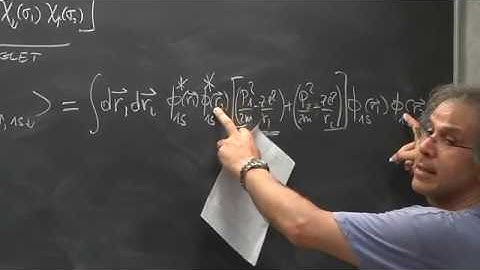 χ↓(σ₁) χᵨ(σ₂)]
GLET
, 1s↓ > = ∫ dr⃗₁ dr⃗₂ ϕ*₁ₛ(r⃗₁) ϕ*₁ₛ(r⃗₂) [(P₁²/2m - Ze²/r₁) + (P₂²/2m - Ze²/r₂)] ϕ₁ₛ(r⃗₁) ϕ₁ₛ(r⃗₂)